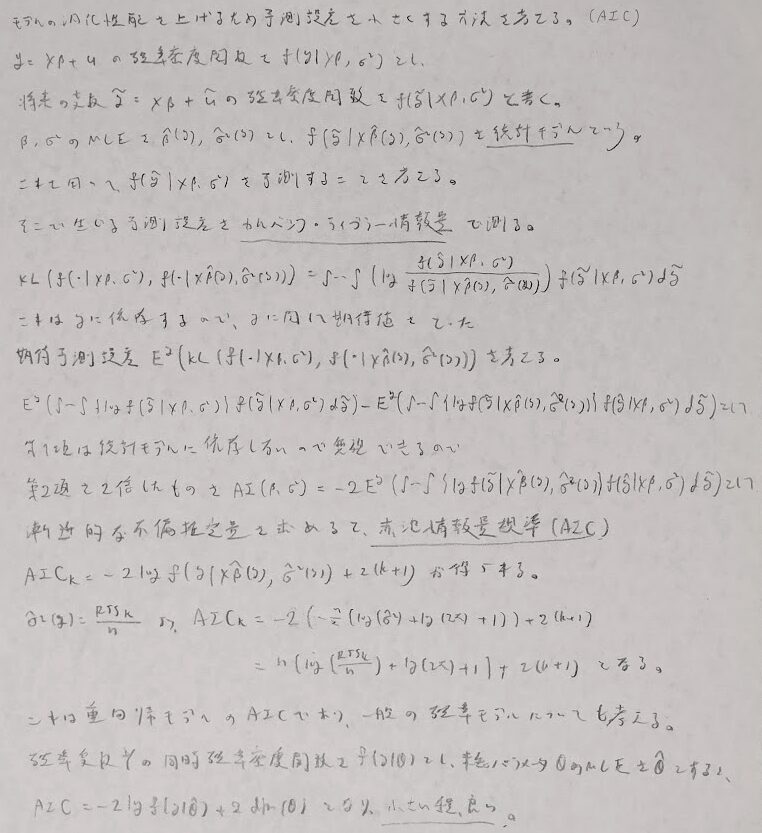 モデルの汎化性能を上げるため予測誤差を小さくする方法を考える。(AIC)
y = Xβ + u の確率密度関数を f(y|Xβ, σ²) とし、
将来の変数 ỹ = Xβ + ũ の確率密度関数を f(ỹ|Xβ, σ²) と書く。
β, σ² の MLE を β̂(y), σ̂²(y) とし、f(ỹ|Xβ̂(y), σ̂²(y)) を統計モデルという。
これを用いて、f(ỹ|Xβ, σ²) を予測することを考える。
そこで生じる予測誤差をカルバック・ライブラー情報量で測る。
KL(f(·|Xβ, σ²), f(·|Xβ̂(y), σ̂²(y))) = ∫…∫ (log f(ỹ|Xβ, σ²) / f(ỹ|Xβ̂(y), σ̂²(y))) f(ỹ|Xβ, σ²) dỹ
これは y に依存するので、y に関して期待値をとった
期待予測誤差 E^y(KL(f(·|Xβ, σ²), f(·|Xβ̂(y), σ̂²(y)))) を考える。
E^y(∫…∫{log f(ỹ|Xβ, σ²)} f(ỹ|Xβ, σ²) dỹ) − E^y(∫…∫{log f(ỹ|Xβ̂(y), σ̂²(y))} f(ỹ|Xβ, σ²) dỹ) として
第1項は統計モデルに依存しないので無視できるので
第2項を2倍したものを AI(β, σ²) = −2E^y(∫…∫{log f(ỹ|Xβ̂(y), σ̂²(y))} f(ỹ|Xβ, σ²) dỹ) として
漸近的な不偏推定量を求めると、赤池情報量規準(AIC)
AIC_k = −2 log f(y|Xβ̂(y), σ̂²(y)) + 2(k+1) が得られる。
σ̂²(y) = RSS_k / n より、AIC_k = −2(−n/2 (log(σ̂²) + log(2π) + 1)) + 2(k+1)
= n{log(RSS_k / n) + log(2π) + 1} + 2(k+1) となる。
これは重回帰モデルの AIC であり、一般の確率モデルについても考える。
確率変数 Y の同時確率密度関数を f(y|θ) とし、未知パラメータ θ の MLE を θ̂ とすると、
AIC = −2 log f(y|θ̂) + 2 dim(θ) となり、小さい程、良い。